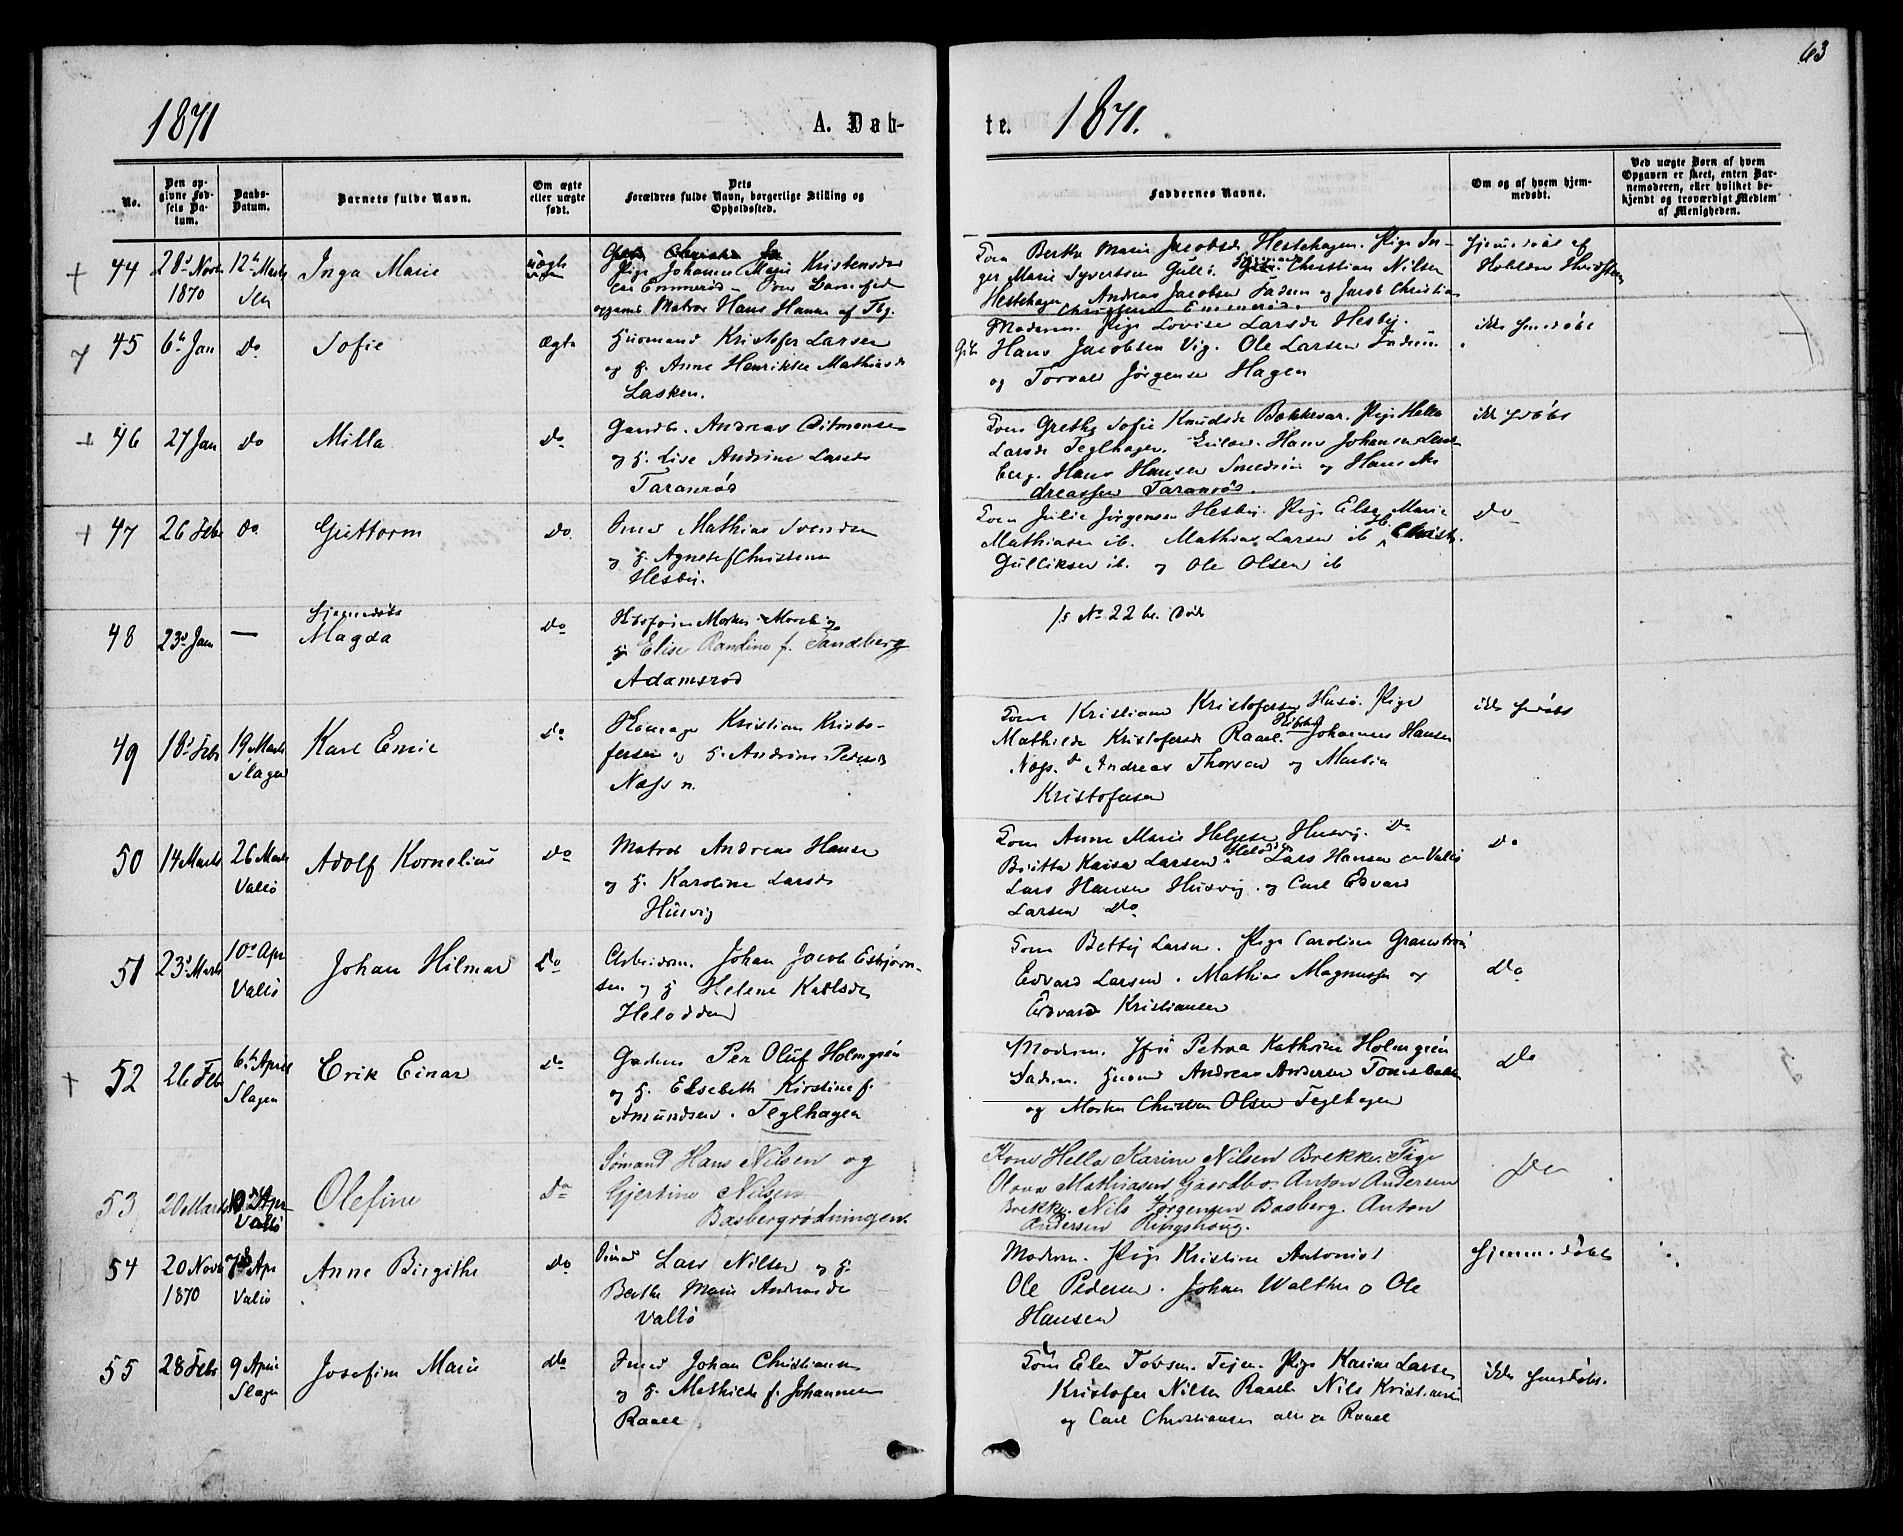 63
1871
A. Døb-
te.
1871.
No.
Den op-
givne Fød-
sels Da-
tum.
Daabs-
Datum.
Barnets fulde Navn.
Om ægte
eller uægte
født.
Dets
Forældres fulde Navn, borgerlige Stilling og
Opholdssted.
Faddernes Navne.
Om og af hvem hjem-
medøbt.
Ved uægte Børn af hvem
Opgaven er skeet, enten Bar-
nemoderen, eller hvilket be-
kjendt og troværdigt Medlem
af Menigheden.
44
28d Novbr
1870
12te Marts
Sem
Inga Marie
uægte
Pige Johanne Marie Kristensdr
Emmerød
opgivet Matros Hans Hansen af Tbg.
Kone Berthe Marie Jacobsdr Hestehagen. Pige In-
ger Marie Syvertsen Gullö. Christian Nilsen
Hestehagen Andreas Jacobsen Faderen og Jacob Christian
Christensen Emmerød.
hjemmedøbt af
45
6te Jan
Do
Sofie
ægte
Huusmand Kristofer Larsen
og H. Anne Henrikke Mathiasdr
Lasken.
Moderen. Pige Lovise Larsdr Hesby.
Hans Jacobsen Vig. Ole Larsen Faderen
og Torvald Jörgensen Hagen
ikke hmdøbt
46
27 Jan
Do
Milla
Do
Gaardbr. Andreas Ditmansen
og H. Lise Andrine Larsdr
Taranrød
Kone Grethe Sofie Knudsdr Bakkevar. Pige Hella
Larsdr Teglhagen. Hans Johansen Lens-
berg. Hans Hansen Smedsrön og Hans An-
dreassen Taranrød.
ikke hmdøbt
47
26 Febr
Do
Guttorm
Do
Smed Mathias Svendsen
og H. Agnete f Christensen
Hesby.
Kone Julie Jörgensen Hesby. Pige Elen Marie
Mathiasen ib. Mathias Larsen ib Christ.
Gulliksen ib. og Ole Olsen ib
Do
48
23d Jan
—
hjemmedøbt
Magda
Do
H. Elise Randine f. Sandberg
Adamsrød
No 22 bl. Døde
49
18d Febr
19 Marts
Slagen
Karl Emil
Do
Kristian Kristo-
fersen og H. Andrine Pedersdr
Næss n.
Kone Kristiane Kristofersen Husö. Pige
Mathilde Kristofersdr Raael. Johannes Hansen
Næss. Andreas Thorsen og Martin
Kristofersen
ikke hmdøbt
50
14 Marts
26 Marts
Vallö
Adolf Kornelius
Do
Matros Andreas Hansen
og H. Karoline Larsdr
Husvig
Kone Anne Marie Helgesen Husvig. Do
Britta Kaisa Larsen Helodden. Lars Hansen Vallö
Lars Hansen Husvig og Carl Edvard
Larsen Do
Do
51
23d Marts
10de Apr
Vallö
Johan Hilmar
Do
Arbeidsm. Johan Jacob Esbjörn-
sen og H. Helene Karlsdr
Helodden
Kone Betty Larsen. Pige Caroline Granström
Edvard Larsen. Mathias Magnussen og
Edvard Kristiansen
Do
52
26 Febr
6te April
Slagen
Erik Einar
Do
Per Oluf Holmgrén
og H. Elsebeth Kirstine f.
Amundsen. Teglhagen
Moderen. Jfr. Petrea Kathrine Holmgrén
Faderen. Andreas Andersen
og Christen Olsen Teglhagen
Do
53
20 Marts
10de Apr
Vallö
Olefine
Do
Sømand Hans Nilsen og
Gjertine Nilsen
Basbergrødningen.
Kone Hella Karine Nilsen Brekke. Pige
Olava Mathiasen Gaardbo. Anton Andersen
Brekke. Nils Jørgensen Basberg. Anton
Andersen Ringshoug.
Do
54
20 Novbr
1870
7de Apr
Vallö
Anne Birgithe
Do
Lars Nilsen og H.
Berthe Marie Andreasdr
Vallö
Moderen. Pige Kristine Antonisd
Ole Pedersen. Johan Walther o Ole
Hansen
hjemmedøbt
55
28 Febr
9 April
Slagen
Josefine Marie
Do
Smed Johan Christiansen
og H. Mathilde f. Johannesen
Raael
Kone Elen Tovsen. Pige Karine Larsen
Kristofer Nilsen Raael Nils Kristiansen
og Carl Christiansen alle Raael
ikke hmdøbt.